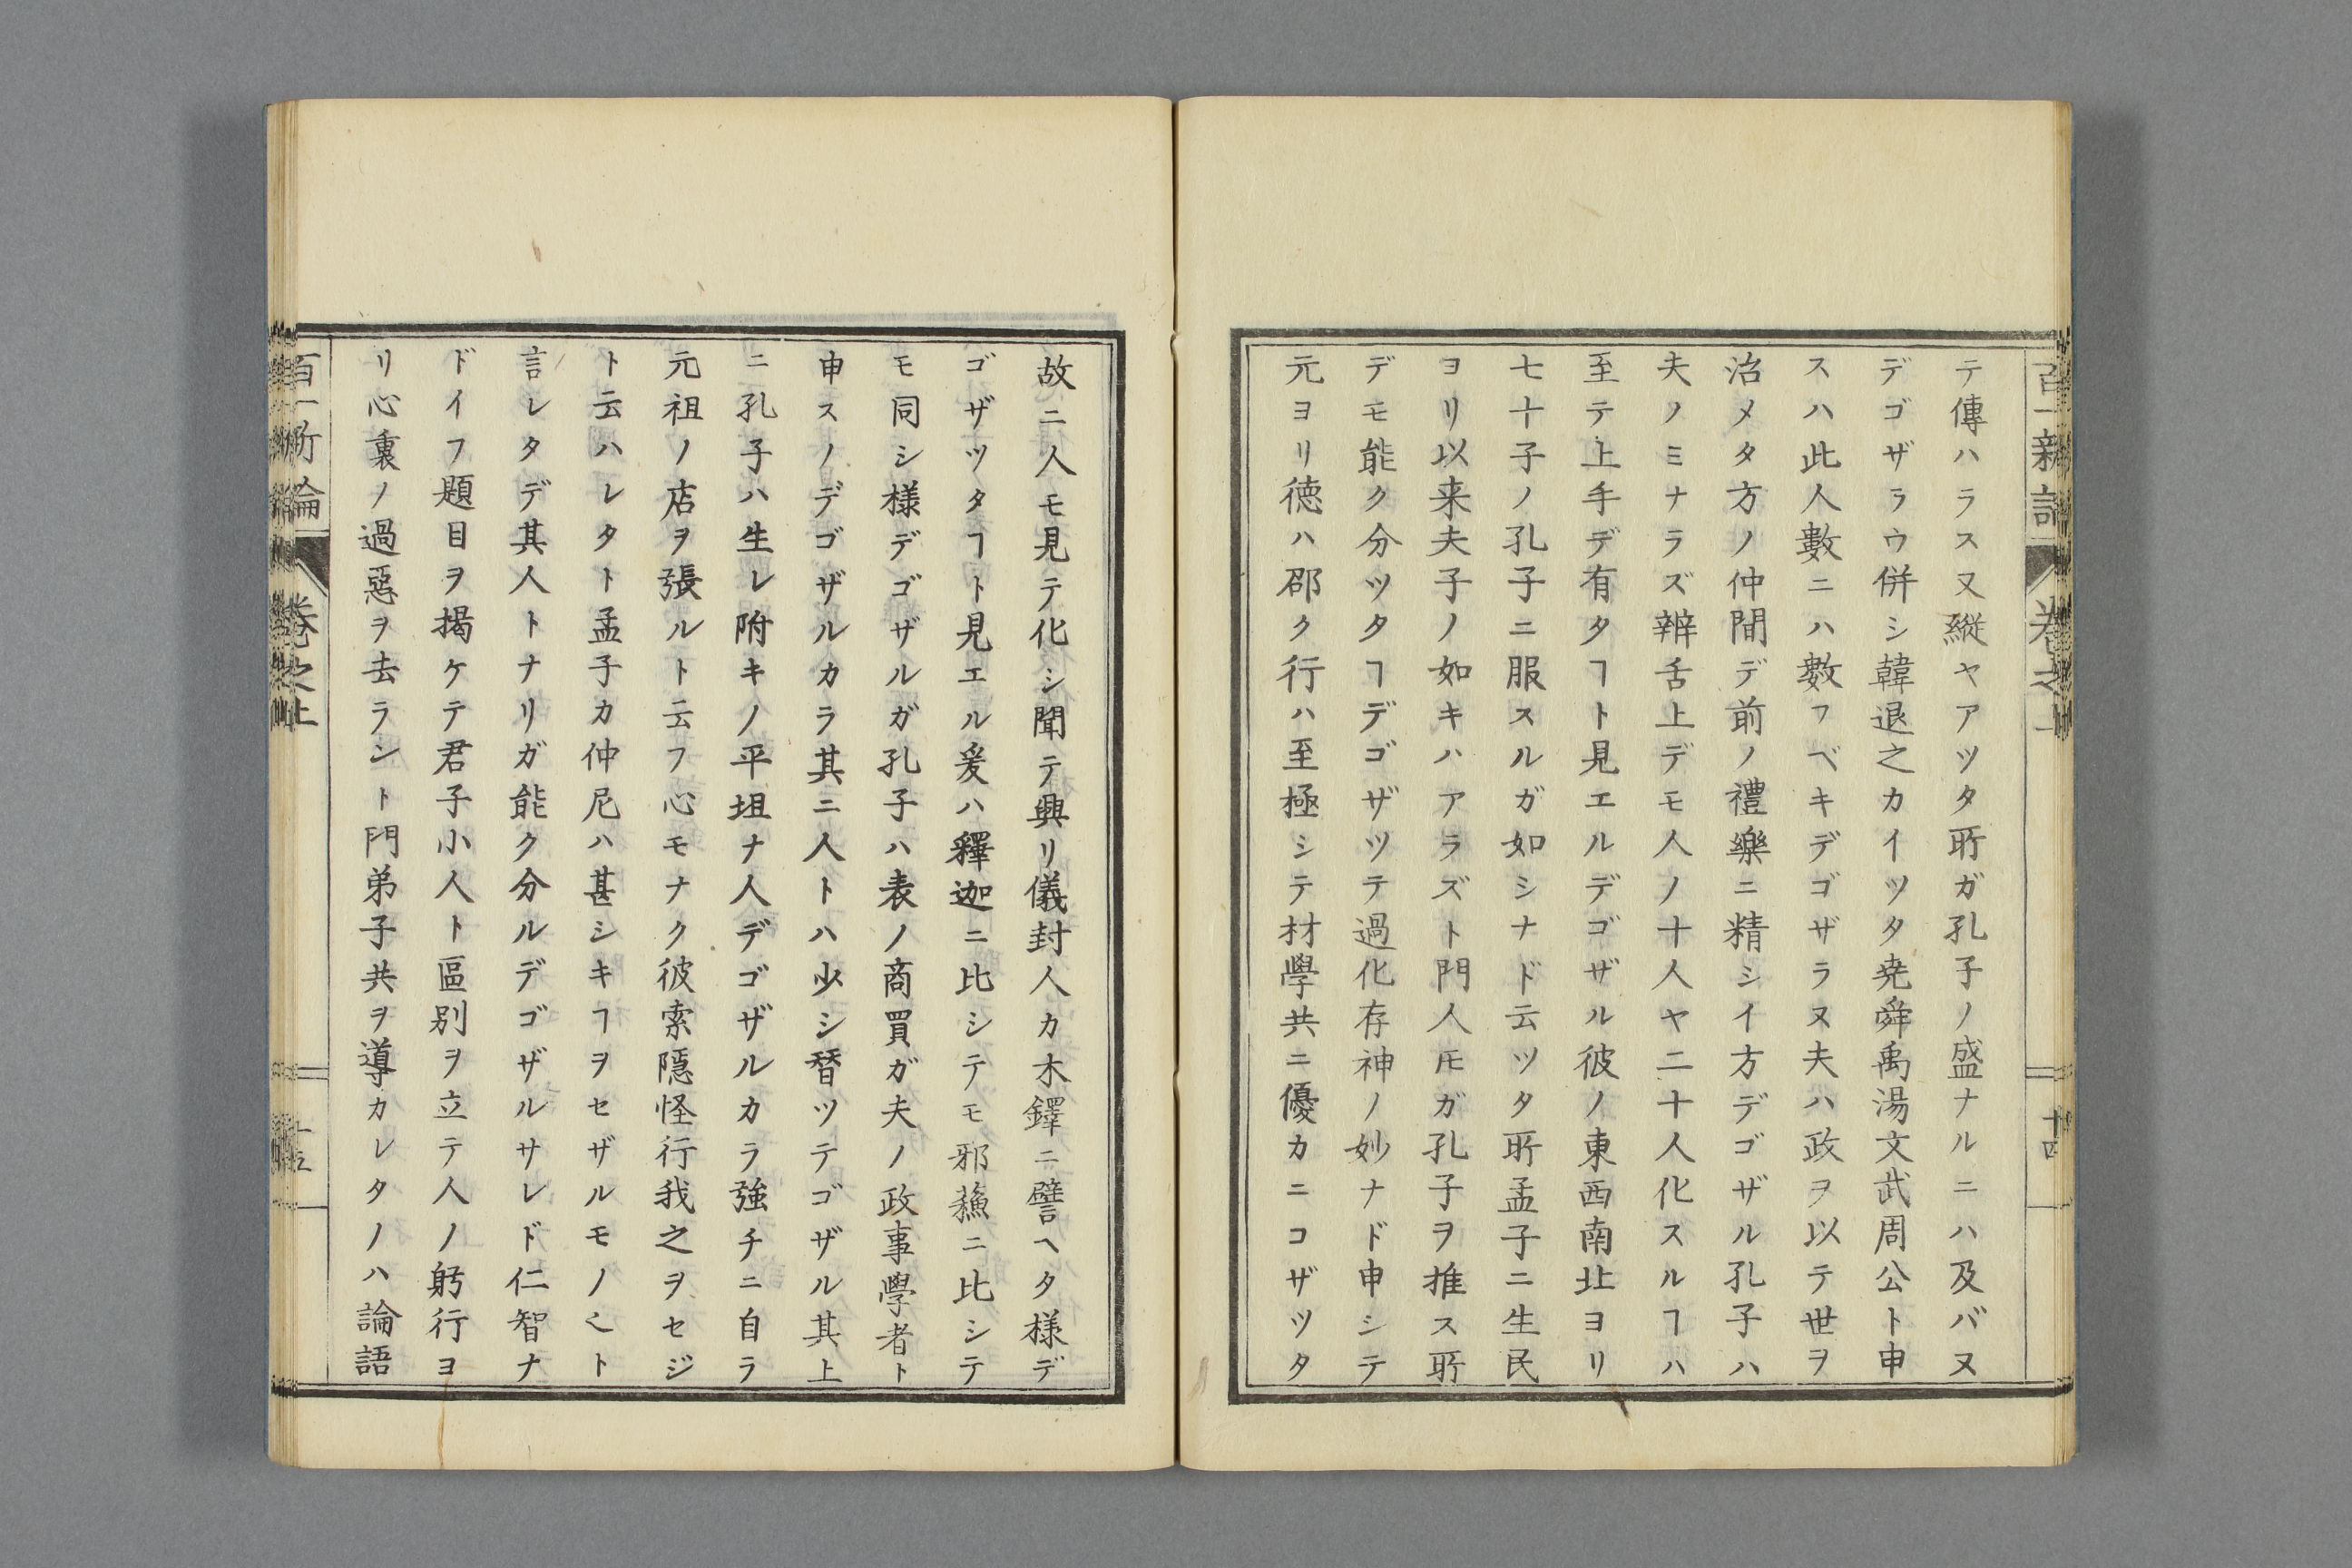 テ傳ハラス又縦ヤアツタ所ガ孔子ノ盛ナルニハ及バヌ
デゴザラウ併シ韓退之カイツタ尭舜禹湯文武周公ト申
スハ此人數ニハ數フベキデゴザラヌ夫ハ政ヲ以テ世ヲ
治メタ方ノ仲間デ前ノ禮樂ニ精シイ方デゴザル孔子ハ
夫ノミナラズ辨舌上デモ人ノ十人ヤ二十人化スルヿハ
至テ上手デ有タヿト見エルデゴザル彼ノ東西南北ヨリ
七十子ノ孔子ニ服スルガ如シナド云ツタ所孟子ニ生民
ヨリ以来夫子ノ如キハアラズト門人𪜈ガ孔子ヲ推ス所
デモ能ク分ツタヿデゴザツテ過化存神ノ妙ナド申シテ
元ヨリ徳ハ郡ク行ハ至極シテ材學共ニ優カニコザツタ
百一新論 卷之上 十四
故ニ人モ見テ化シ聞テ興リ儀封人カ木鐸ニ譬ヘタ様デ
ゴザツタヿト見エル爰ハ釋迦ニ比シテモ邪蘓ニ比シテ
モ同シ様デゴザルガ孔子ハ表ノ商買ガ夫ノ政事學者ト
申スノデゴザルカラ其ニ人トハ少シ替ツテゴザル其上
ニ孔子ハ生レ附キノ平坦ナ人デゴザルカラ強チニ自ラ
元祖ノ店ヲ張ルト云フ心モナク彼索隠怪行我之ヲセジ
ト云ハレタト孟子カ仲尼ハ甚シキヿヲセザルモノ〱ト
言レタデ其人トナリガ能ク分ルデゴザルサレド仁智ナ
ドイフ題目ヲ掲ケテ君子小人ト區別ヲ立テ人ノ躬行ヨ
リ心裏ノ過惡ヲ去ラント門弟子共ヲ導カレタノハ論語
百一新論 卷之上 十五